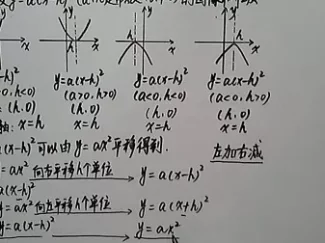 y=a(x-h)²
y y
h h
x x x x
y=a(x-h)² y=a(x-h)² y=a(x-h)²
h<0) (a>0,h>0) (a<0,h<0) (a<0,h>0)
0) (h,0) (h,0) (h,0)
x=h x=h x=h x=h
(x-h)²可以由y=ax²平移得到.
左加右减
=ax² 向右平移h个单位 y=a(x-h)²
a(x-h)²
y=ax² 向左平移h个单位 y=a(x+h)²
y=a(x-h)² y=ax²